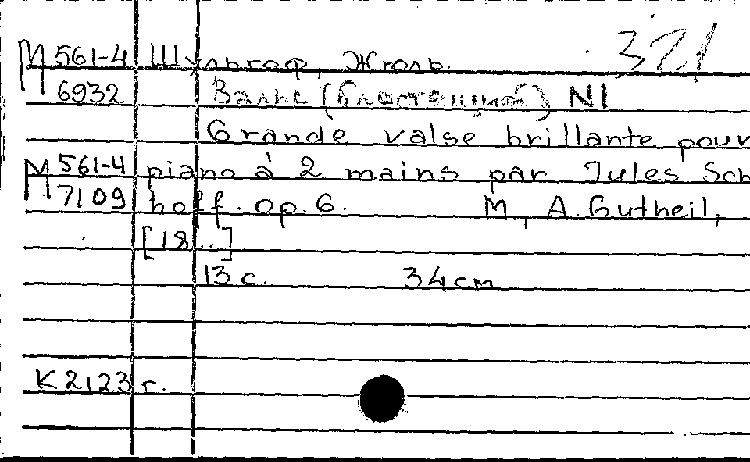 321
М 561-4 Шульгоф, Жюль.
6932 Вальс (блестящий) N1
Grande valse brillante pour
М 561-4 piano à 2 mains par Jules Sch
7109 hoff. Op. 6. М., A. Gutheil,
[18..]
13 с. 34 cm
К 2123 г.